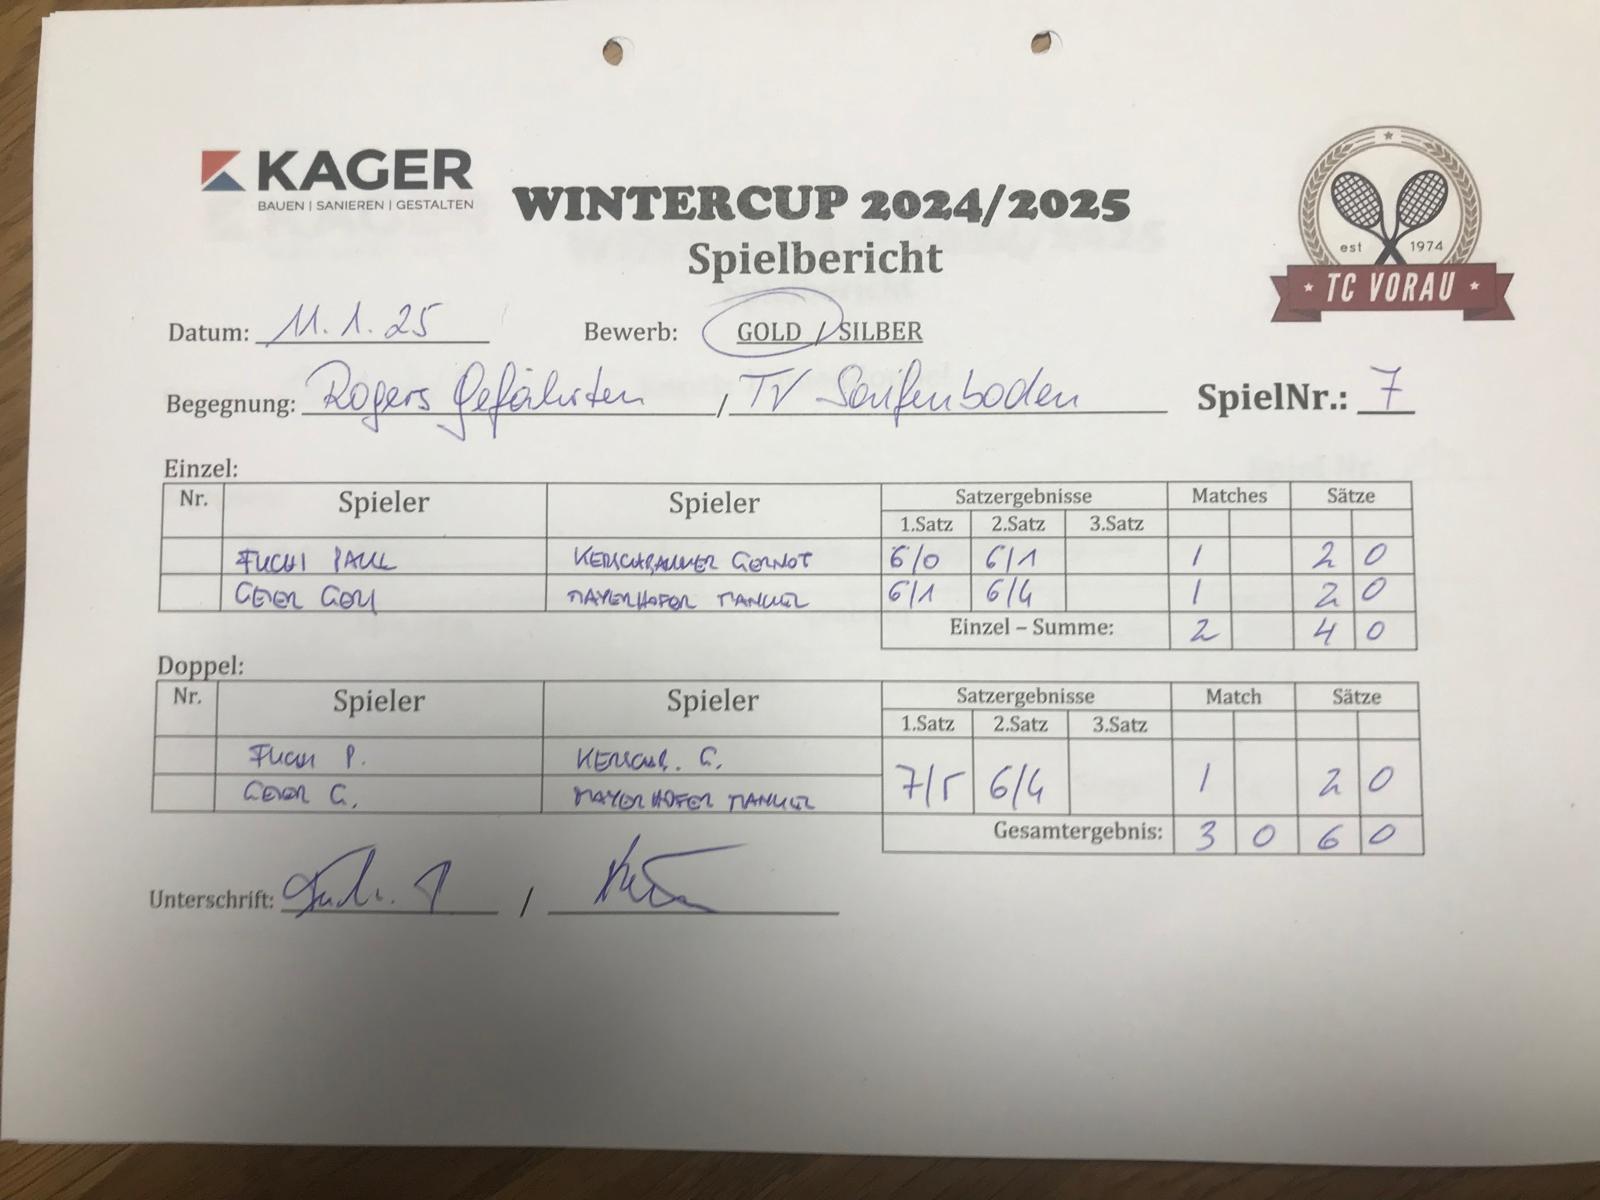 KAGER
BAUEN | SANIEREN | GESTALTEN
WINTERCUP 2024/2025
Spielbericht
est 1974
TC VORAU
Datum: 11.1.25 Bewerb: GOLD / SILBER
Begegnung: Rogers Gefährten / TV Saifenboden SpielNr.: 7
Einzel:
Nr. Spieler Spieler Satzergebnisse Matches Sätze
1.Satz 2.Satz 3.Satz
PAUL GERNOT 6/0 6/1 1 2 0
GEIER MAYERHOFER 6/1 6/4 1 2 0
Einzel – Summe: 2 4 0
Doppel:
Nr. Spieler Spieler Satzergebnisse Match Sätze
1.Satz 2.Satz 3.Satz
P. G.
GEIER G. MAYERHOFER 7/5 6/4 1 2 0
Gesamtergebnis: 3 0 6 0
Unterschrift: /